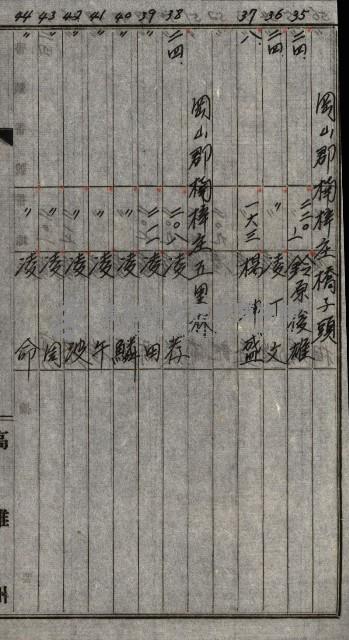 岡山郡楠梓庄橋子頭
35 二四. 二三〇ノ一 鈴原俊雄
36 二四 〃 凌丁文
37 八. 一六三 楊 盛
岡山郡楠梓庄五里林
38 二四. 二〇八 凌荐
39 〃 二一一 凌田
40 〃 〃 凌鱗
41 〃 〃 凌午
42 〃 〃 凌
43 〃 〃 凌
44 〃 〃 凌命
高雄州